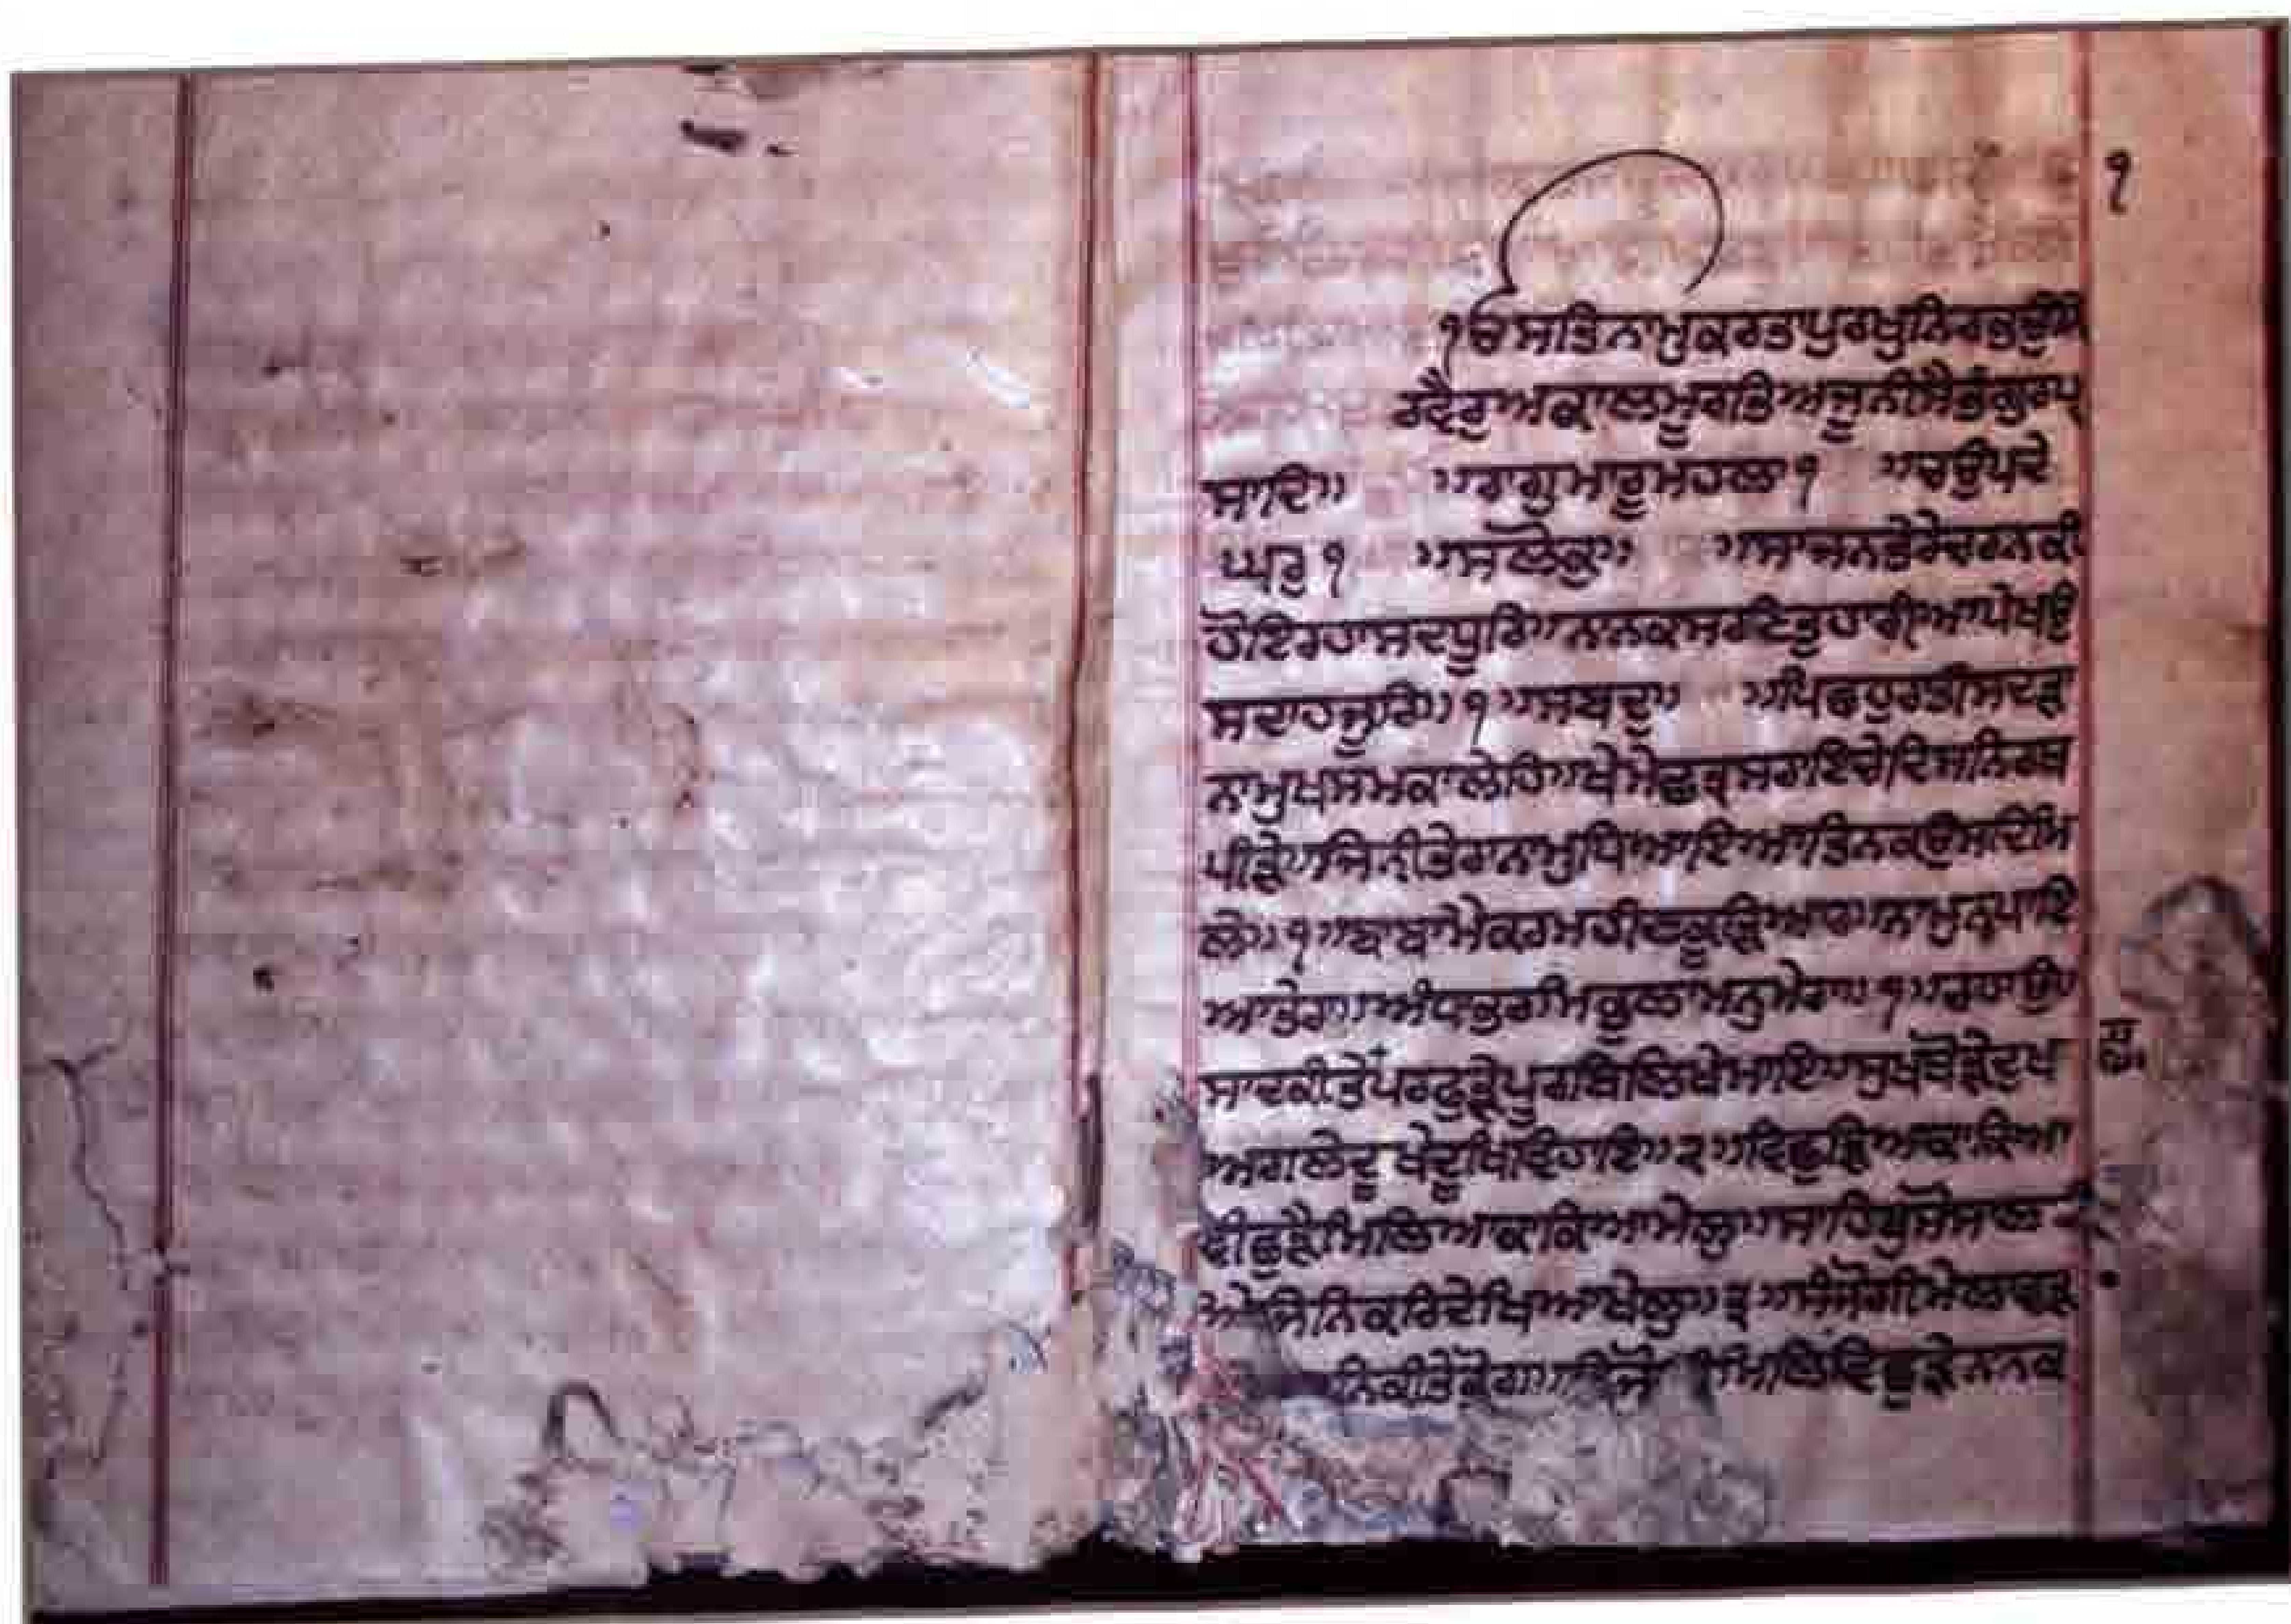 ੧
ੴ ਸਤਿਨਾਮੁਕਰਤਾਪੁਰਖੁਨਿਰਭਉਨਿ
ਰਵੈਰੁਅਕਾਲਮੂਰਤਿਅਜੂਨੀਸੈਭੰਗੁਰਪ੍ਰ
ਸਾਦਿ॥ ॥ਰਾਗੁਮਾਰੂਮਹਲਾ੧ ॥ਚਉਪਦੇ
॥ਘਰੁ੧ ॥ਸਲੋਕੁ॥ ॥ਸਾਜਨਤੇਰੇਚਰਨਕੀ
ਹੋਇਰਹਾਸਦਧੂਰਿ॥ਨਾਨਕਸਰਣਿਤੁਹਾਰੀਆਪੇਖਉ
ਸਦਾਹਜੂਰਿ॥੧॥ਸਬਦੁ॥ ॥ਪਿਛਹੁਰਾਤੀਸਦੜਾ
ਨਾਮੁਖਸਮਕਾਲੇਹਿ॥ਖੇਮੇਛਤ੍ਰਸਰਾਇਚੇਦਿਸਨਿਰਥ
ਪੀੜੇ॥ਜਿਨੀਤੇਰਾਨਾਮੁਧਿਆਇਆਤਿਨਕਉਸਦਿਮਿ
ਲੇ॥੧॥ਬਾਬਾਮੇਕਰਮਹੀਣਕੂੜਿਆਰ॥ਨਾਮੁਨਪਾਇ
ਆਤੇਰਾ॥ਅੰਧਾਭਰਮਿਭੂਲਾਮਨੁਮੇਰਾ॥੧॥ਰਹਾਉ॥
ਸਾਦਕੀਤੇਪਰਫੁੜੇਪੂਰਬਿਲਿਖੇਮਾਇ॥ਸੁਖਥੋੜੇਦੁਖ
ਅਗਲੇਦੂਖੇਦੂਖਿਵਿਹਾਇ॥੨॥ਵਿਛੁੜਿਆਕਾਕਿਆ
ਵੀਛੁੜੈਮਿਲਿਆਕਾਕਿਆਮੇਲੁ॥ਸਾਹਿਬੁਸੋਸਾਲਾ
ਜਿਨਿਕਰਿਦੇਖਿਆਖੇਲੁ॥੩॥ਸੰਜੋਗੀਮੇਲਾਵੜਾ
ਨਿਕੀਤੇਭੋਗ॥ਵਿਜੋ ਮਿਲਿਵਿਛੁੜੇਨਾਨਕ